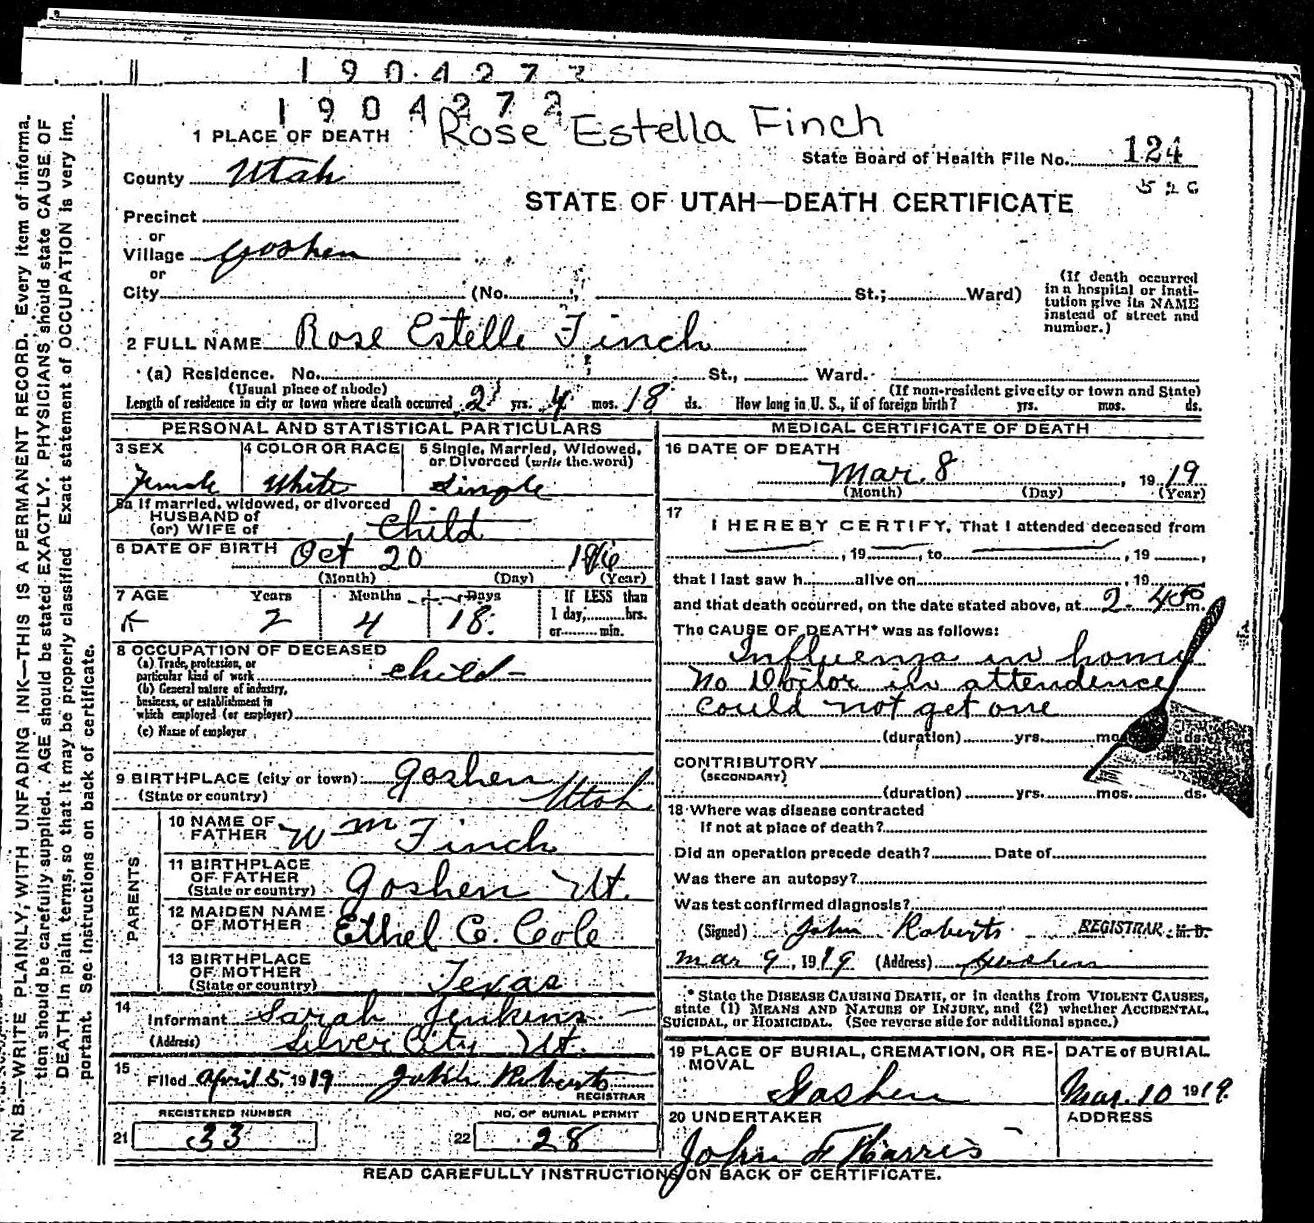 1904272
1904272
Rose Estella Finch
1 PLACE OF DEATH
State Board of Health File No. 124
526
County Utah
STATE OF UTAH—DEATH CERTIFICATE
Precinct
or
Village Goshen
or
City (No. St.; Ward)
(If death occurred in a hospital or insti-
tution give its NAME
instead of street and
number.)
2 FULL NAME Rose Estelle Finch
(a) Residence. No. St., Ward.
(Usual place of abode) (If non-resident give city or town and State)
Length of residence in city or town where death occurred 2 yrs. 4 mos. 18 ds. How long in U. S., if of foreign birth? yrs. mos. ds.
PERSONAL AND STATISTICAL PARTICULARS
3 SEX Female
4 COLOR OR RACE White
5 Single, Married, Widowed,
or Divorced (write the word)
Single
5a If married, widowed, or divorced
HUSBAND of
(or) WIFE of Child
6 DATE OF BIRTH Oct 20 1916
(Month) (Day) (Year)
7 AGE Years 2 Months 4 Days 18
If LESS than
1 day, hrs.
or min.
8 OCCUPATION OF DECEASED
(a) Trade, profession, or
particular kind of work child
(b) General nature of industry,
business, or establishment in
which employed (or employer)
(c) Name of employer
9 BIRTHPLACE (city or town) Goshen
(State or country) Utah
PARENTS
10 NAME OF
FATHER Wm Finch
11 BIRTHPLACE
OF FATHER
(State or country) Goshen Ut.
12 MAIDEN NAME
OF MOTHER Ethel C. Cole
13 BIRTHPLACE
OF MOTHER
(State or country) Texas
14
Informant Sarah Jenkins
(Address) Silver City Ut.
15
Filed April 5 1919 John Roberts
REGISTRAR
REGISTERED NUMBER
21 33
NO. OF BURIAL PERMIT
22 28
MEDICAL CERTIFICATE OF DEATH
16 DATE OF DEATH
Mar. 8, 1919
(Month) (Day) (Year)
17
I HEREBY CERTIFY, That I attended deceased from
, 19 , to , 19 ,
that I last saw h alive on , 19
and that death occurred, on the date stated above, at 2-40 P m.
The CAUSE OF DEATH* was as follows:
Influenza in home
No Doctor in attendence
could not get one
(duration) yrs. mos. ds.
CONTRIBUTORY
(SECONDARY)
(duration) yrs. mos. ds.
18 Where was disease contracted
If not at place of death?
Did an operation precede death? Date of
Was there an autopsy?
Was test confirmed diagnosis?
(Signed) John Roberts REGISTRAR M. D.
Mar 9, 1919 (Address) Goshen
* State the DISEASE CAUSING DEATH, or in deaths from VIOLENT CAUSES,
state (1) MEANS AND NATURE OF INJURY, and (2) whether ACCIDENTAL,
SUICIDAL, or HOMICIDAL. (See reverse side for additional space.)
19 PLACE OF BURIAL, CREMATION, OR RE-
MOVAL
Goshen
DATE of BURIAL
Mar. 10 1919
20 UNDERTAKER
John F Harris
ADDRESS
READ CAREFULLY INSTRUCTIONS ON BACK OF CERTIFICATE.
N. B.—WRITE PLAINLY, WITH UNFADING INK—THIS IS A PERMANENT RECORD. Every item of informa-
tion should be carefully supplied. AGE should be stated EXACTLY. PHYSICIANS should state CAUSE OF
DEATH in plain terms, so that it may be properly classified. Exact statement of OCCUPATION is very im-
portant. See instructions on back of certificate.